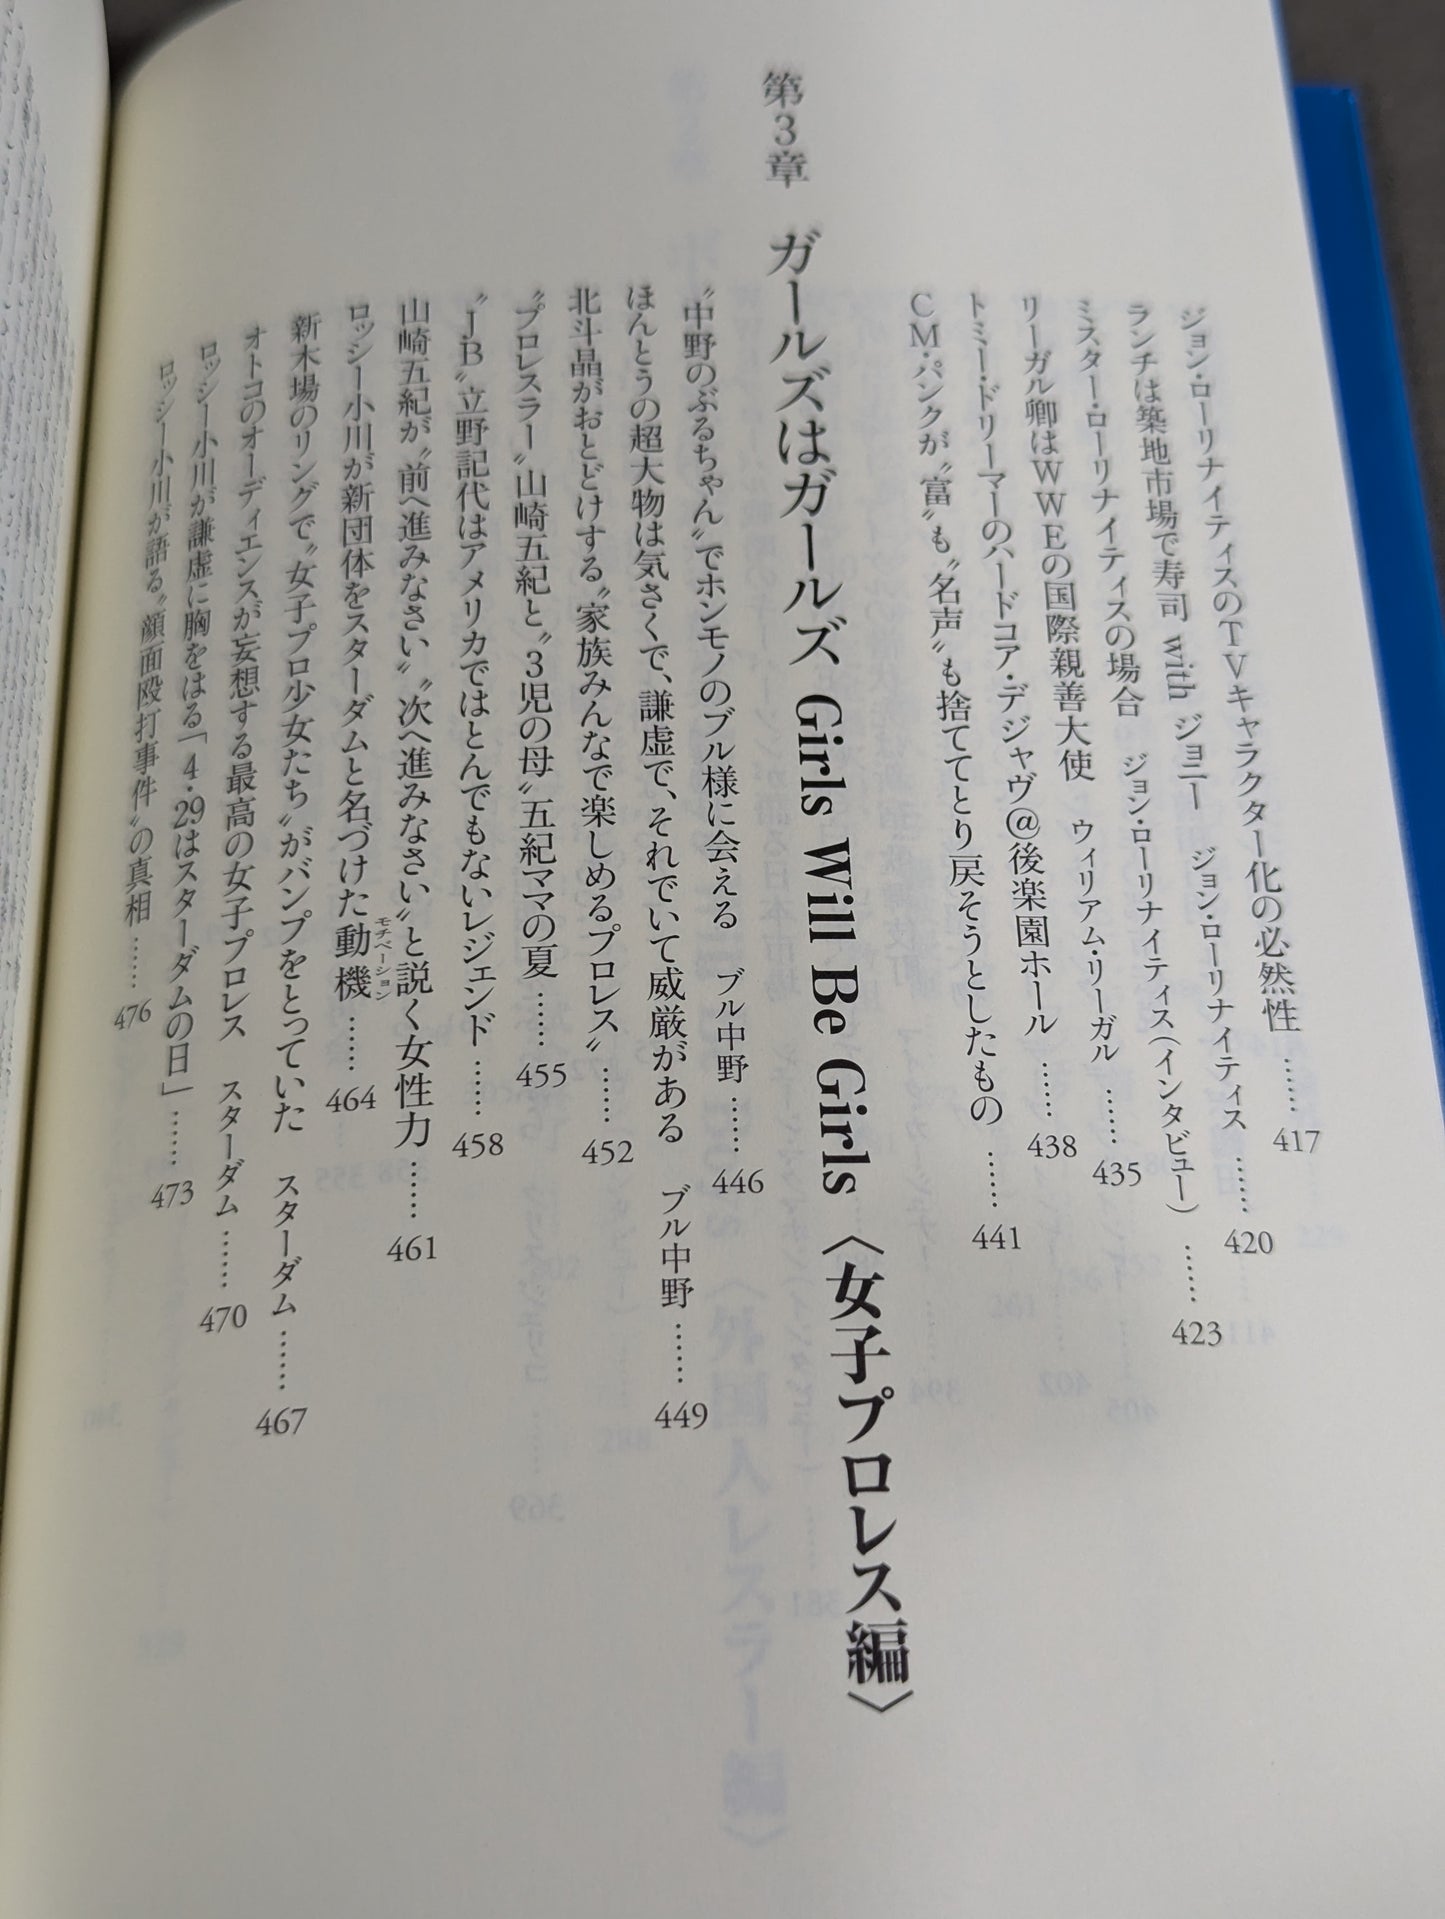 ジョン・ローリナイティスのTVキャラクター化の必然性 …… 417
ランチは築地市場で寿司 with ジョニー ジョン・ローリナイティス …… 420
ミスター・ローリナイティスの場合 ジョン・ローリナイティス(インタビュー) …… 423
リーガル卿はWWEの国際親善大使 ウィリアム・リーガル …… 435
トミー・ドリーマーのハードコア・デジャヴ@後楽園ホール …… 438
CM・パンクが〝富〟も〝名声〟も捨ててとり戻そうとしたもの …… 441
第3章 ガールズはガールズ Girls Will Be Girls〈女子プロレス編〉
〝中野のぶるちゃん〟でホンモノのブル様に会える ブル中野 …… 446
ほんとうの超大物は気さくで、謙虚で、それでいて威厳がある ブル中野 …… 449
北斗晶がおとどけする〝家族みんなで楽しめるプロレス〟 …… 452
〝プロレスラー〟山崎五紀と〝3児の母〟五紀ママの夏 …… 455
〝JB〟立野記代はアメリカではとんでもないレジェンド …… 458
山崎五紀が〝前へ進みなさい〟〝次へ進みなさい〟と説く女性力 …… 461
ロッシー小川が新団体をスターダムと名づけた動機モチベーション …… 464
新木場のリングで〝女子プロ少女たち〟がバンプをとっていた スターダム …… 467
オトコのオーディエンスが妄想する最高の女子プロレス スターダム …… 470
ロッシー小川が謙虚に胸をはる「4・29はスターダムの日」 …… 473
ロッシー小川が語る〝顔面殴打事件〟の真相 …… 476